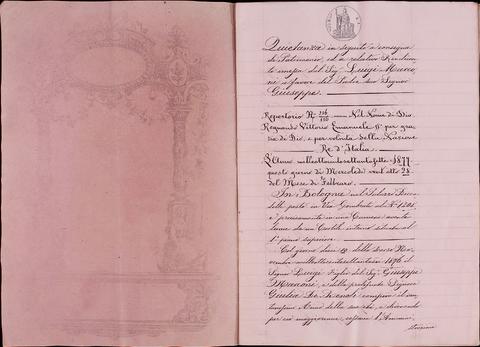 Quietanza in deposito e consegna
di Patrimonio, ed a relativo Rendim
to emessa dal Sig. Luigi
a favore del Padre suo Signor
Giuseppe
Repertorio N.° 116/110 Nel Nome di Dio
Regnando Vittorio Emanuele II° per gra
zia di Dio, e per volontà della Nazione
Re d'Italia
L'Anno milleottocentosettantasette 1877
questo giorno di Mercoledì vent'otto 28
del Mese di Febbraro.
In Bologna nel
posto in Via Gombruti al N.° 1205
e precisamente in una Camera avente
lume da un Cortile interno situata al
1° piano superiore.
Col giorno dieci 10 dello scorso No
vembre milleottocentosettantasei 1876 il
Signor Luigi figlio del Sig. Giuseppe
e della Signora
Giulia compiva il
Anno della sua età, e divenendo
per ciò maggiorenne, cessava l'Ammini
strazione